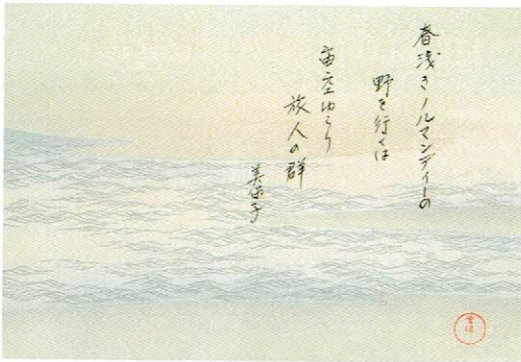 春浅きノルマンディーの
野を行くは
空ゆ
旅人の群
美保子